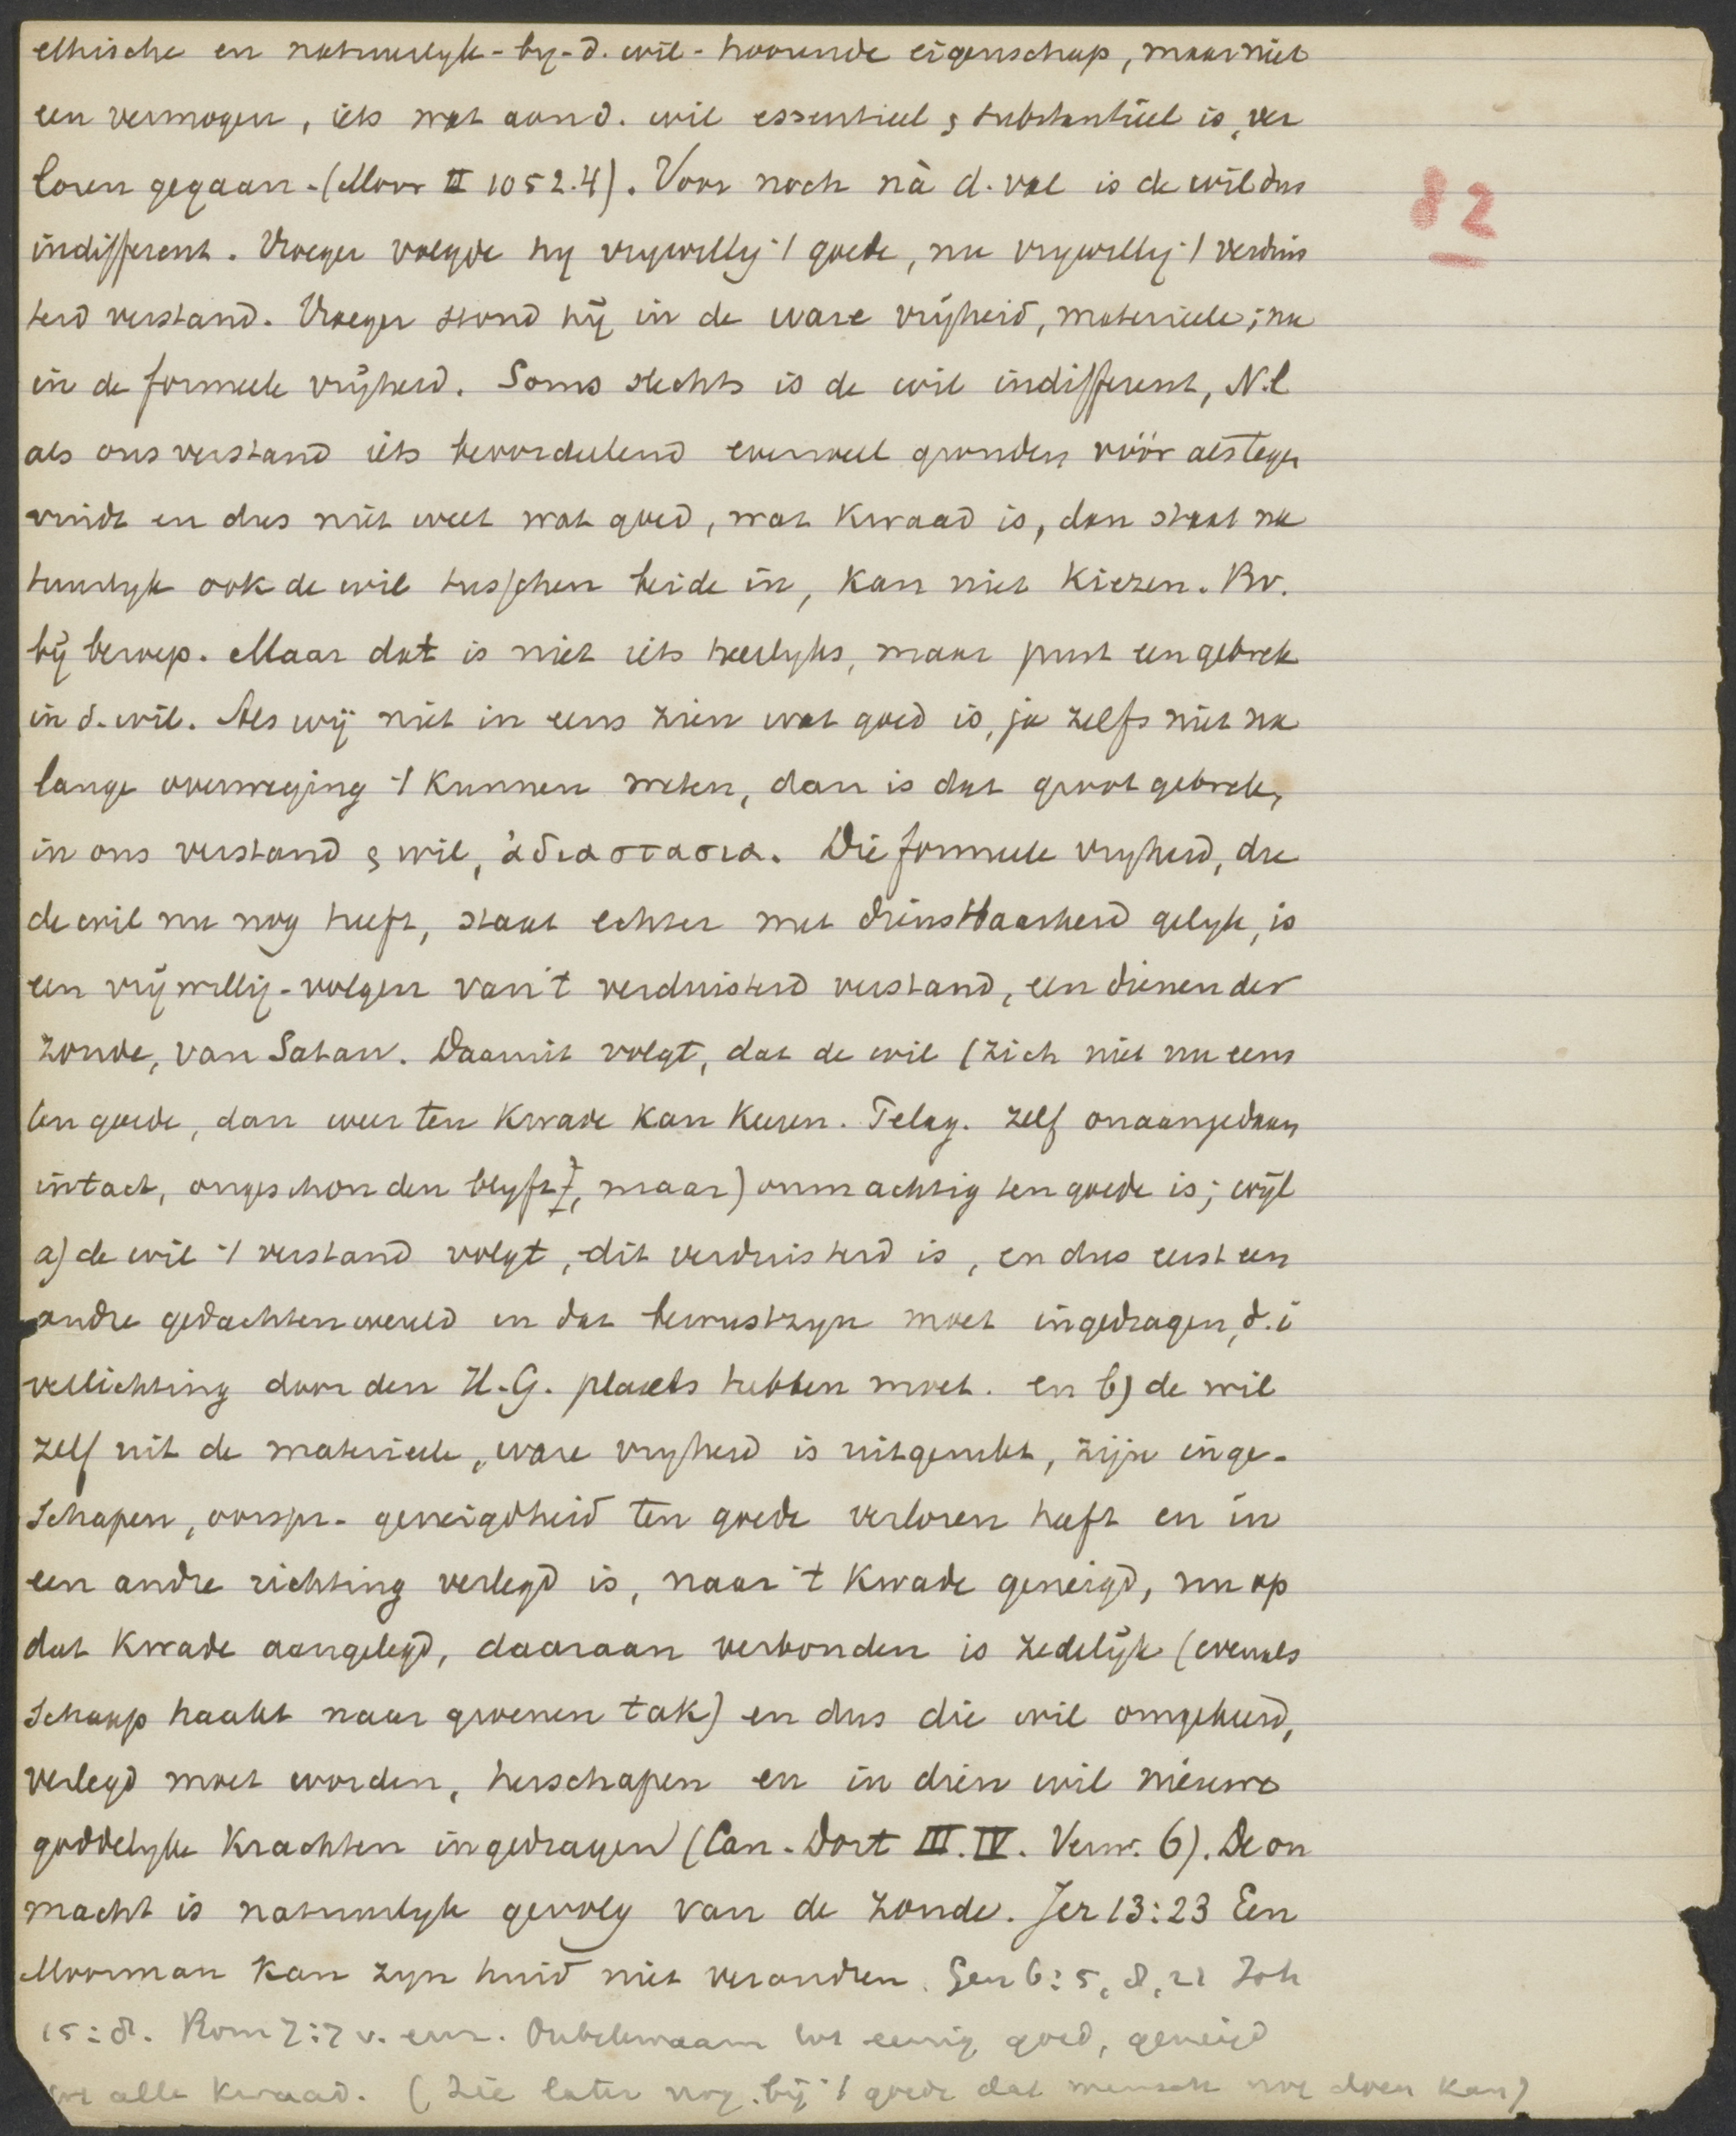 ethische en natuurlyk-by-d. wil-hoorende eigenschap, maar niet
een vermogen, iets wat aan d. wil essentieel & substantieel is, ver
loren gegaan. (Moor II 1052.4). Voor noch nà d. val is de wil dus
indifferent. Vroeger volgde hy vrywillig 't goede, nu vrywillig 't verduis
terd verstand. Vroeger stond hij in de ware vrijheid, materieele; nu
in de formeele vrijheid. Soms slechts is de wil indifferent, N.l
als ons verstand iets beoordeelend evenveel gronden vóór als tegen
vindt en dus niet weet wat goed, wat kwaad is, dan staat na
tuurlyk ook de wil tusschen beide in, kan niet kiezen. Bv.
bij beroep. Maar dat is niet iets heerlyks, maar juist een gebrek
in d. wil. Als wij niet in eens zien wat goed is, ja zelfs niet na
lange overweging 't kunnen weten, dan is dat groot gebrek,
in ons verstand & wil, ἀδιαστασια. Die formeele vryheid, die
de wil nu nog heeft, staat echter met dienstbaarheid gelyk, is
een vrijwillig-volgen van 't verduisterd verstand, een dienen der
zonde, van Satan. Daaruit volgt, dat de wil (zich niet nu eens
ten goede, dan weer ten kwade kan keeren. Pelag. zelf onaangedaan
intact, ongeschonden blyft), maar) onmachtig ten goede is; wijl
a) de wil 't verstand volgt, dit verduisterd is, en dus eerst een
andre gedachtenwereld in dat bewustzyn moet ingedragen, d.i
verlichting door den H.G. plaats hebben moet. en b) de wil
zelf uit de materieele, ware vryheid is uitgerukt, zijn inge-
schapen, oorspr. geneigdheid ten goede verloren heeft en in
een andre richting verlegd is, naar 't kwade geneigd, nu op
dat kwade aangelegd, daaraan verbonden is zedelijk (evenals
schaap haakt naar groenen tak) en dus die wil omgekeerd,
verlegd moet worden, herschapen en in dien wil nieuwe
goddelyke krachten ingedragen (Can. Dort III.IV. Verw. 6). De on
macht is natuurlyk gevolg van de zonde. Jer 13:23 Een
Moorman kan zyn huid niet verandren. Gen 6:5, 8, 21 Joh
15:8. Rom 7:7 v. enz. Onbekwaam tot eenig goed, geneigd
tot alle kwaad. (Zie later nog. bij 't goede dat mensch nog doen kan)
82